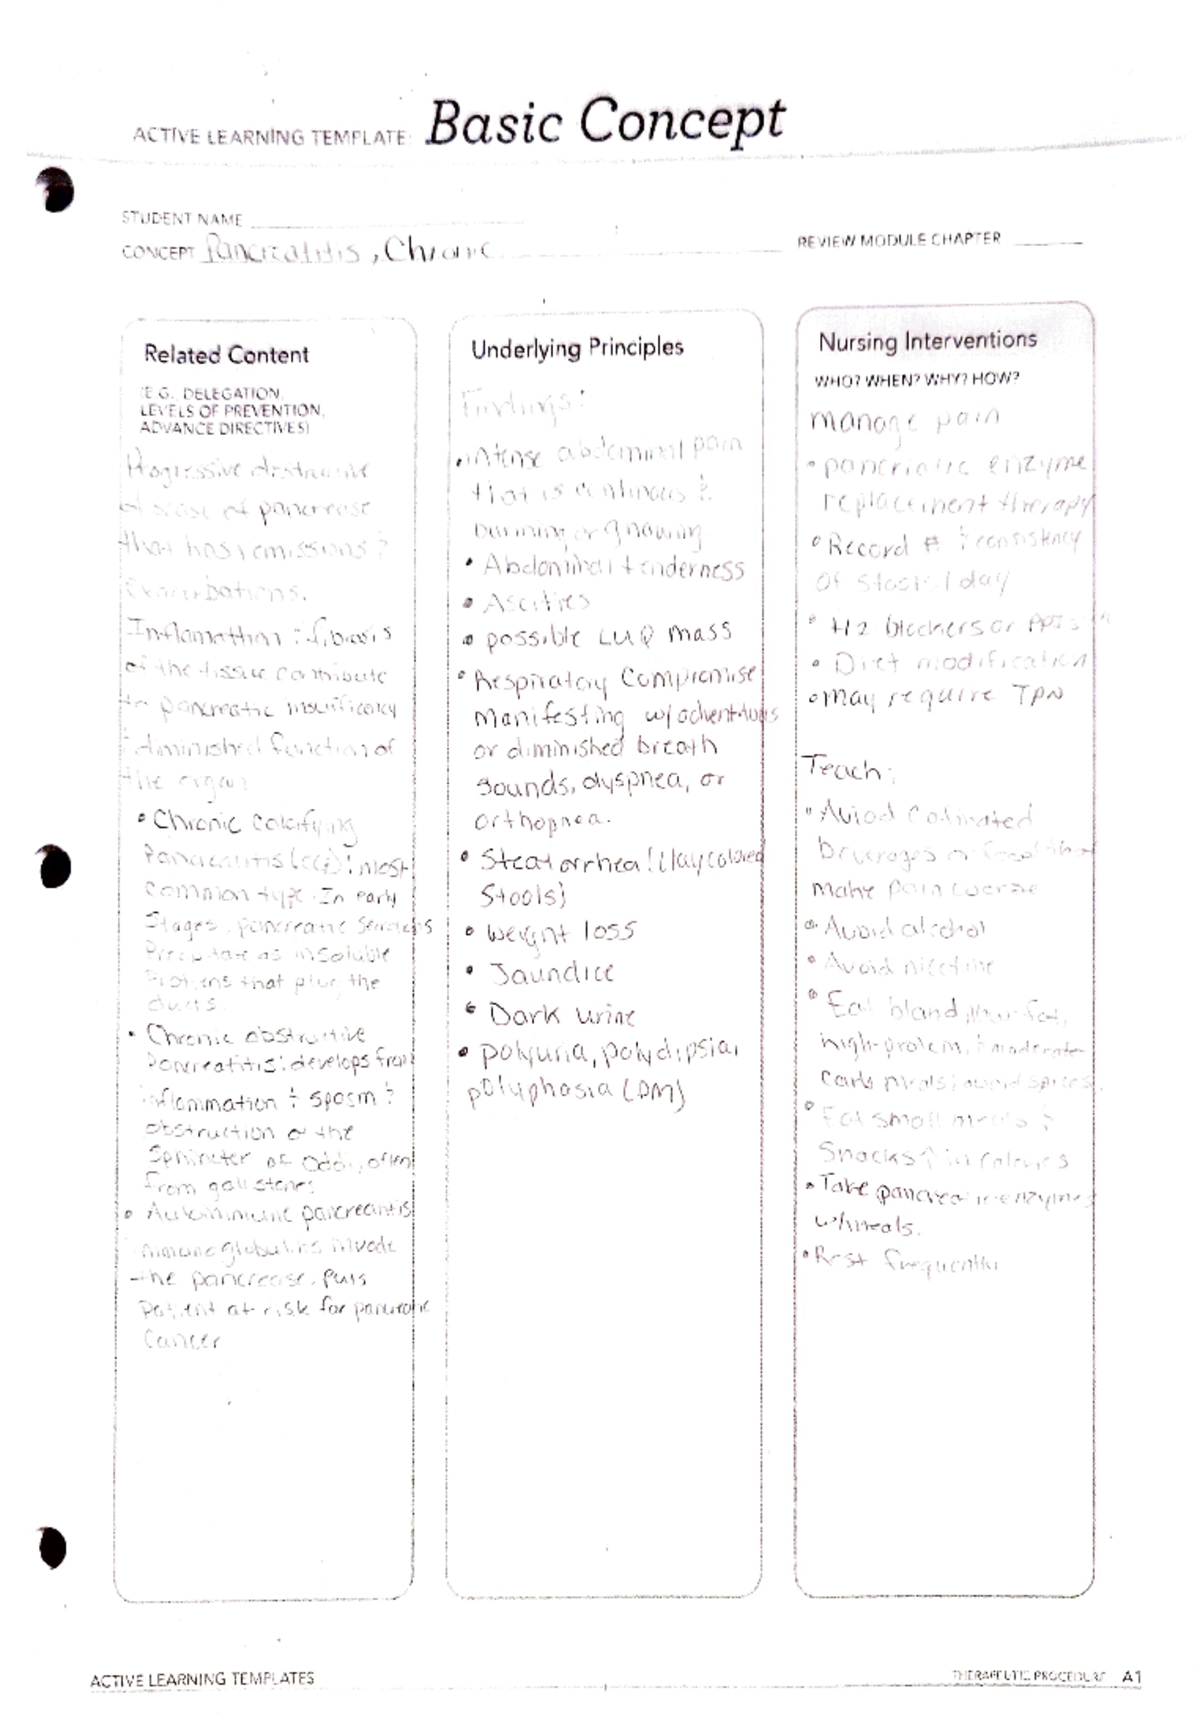 ACTIVE LEARNING TEMPLATE: Basic Concept
STUDENT NAME
CONCEPT Pancreatitis, Chronic
REVIEW MODULE CHAPTER
Related Content
(E.G. DELEGATION,
LEVELS OF PREVENTION,
ADVANCE DIRECTIVES)
Progressive destructive
of pancrease
that has remissions &
Exacerbations.
Inflamation & fibrosis
of the tissue contribute
to pancreatic insufficency
& diminished function of
the organ
• Chronic calcifying
Pancreatitis (CCP): most
common type. In early
Stages, pancreatic
Precipitate as insoluble
Proteins that plug the
ducts.
• Chronic obstructive
Pancreatitis: develops from
inflammation & spasm &
obstruction of the
Sphincter of Oddi, often
from gallstones
• Autoimmune pancreatitis
immunoglobulins invade
the pancrease. Puts
Patient at risk for pancreatic
Cancer
Underlying Principles
Findings:
• intense abdominal pain
that is continous &
burning or gnawing
• Abdominal tenderness
• Ascities
• possible LUQ mass
• Respiratory Compromise
manifesting w/ adventitous
or diminished breath
sounds, dyspnea, or
orthopnea.
• Steatorrhea! (clay colored
Stools)
• weight loss
• Jaundice
• Dark urine
• polyuria, polydipsia,
polyphasia (DM)
Nursing Interventions
WHO? WHEN? WHY? HOW?
manage pain
• pancriatic enzyme
replacement therapy
• Record # & consistency
of stools/day
• H2 blockers or PPIs
• Diet modification
• may require TPN
Teach:
• Aviod
beverages or food that
make pain worse
• Avoid alcohol
• Avoid nicotine
• Eat bland, low fat,
high-protein, & moderate
carb meals; avoid spices.
• Eat small meals &
Snacks ↑ in calories
• Take pancreatic enzymes
w/meals.
• Rest frequently
ACTIVE LEARNING TEMPLATES
THERAPEUTIC PROCEDURE A1